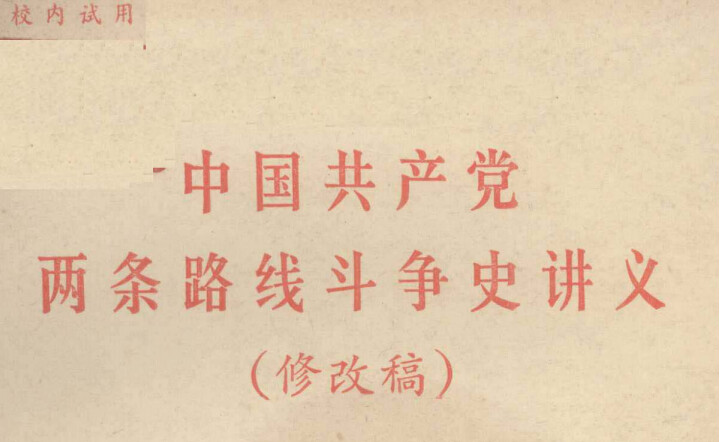 校内试用
中国共产党
两条路线斗争史讲义
(修改稿)